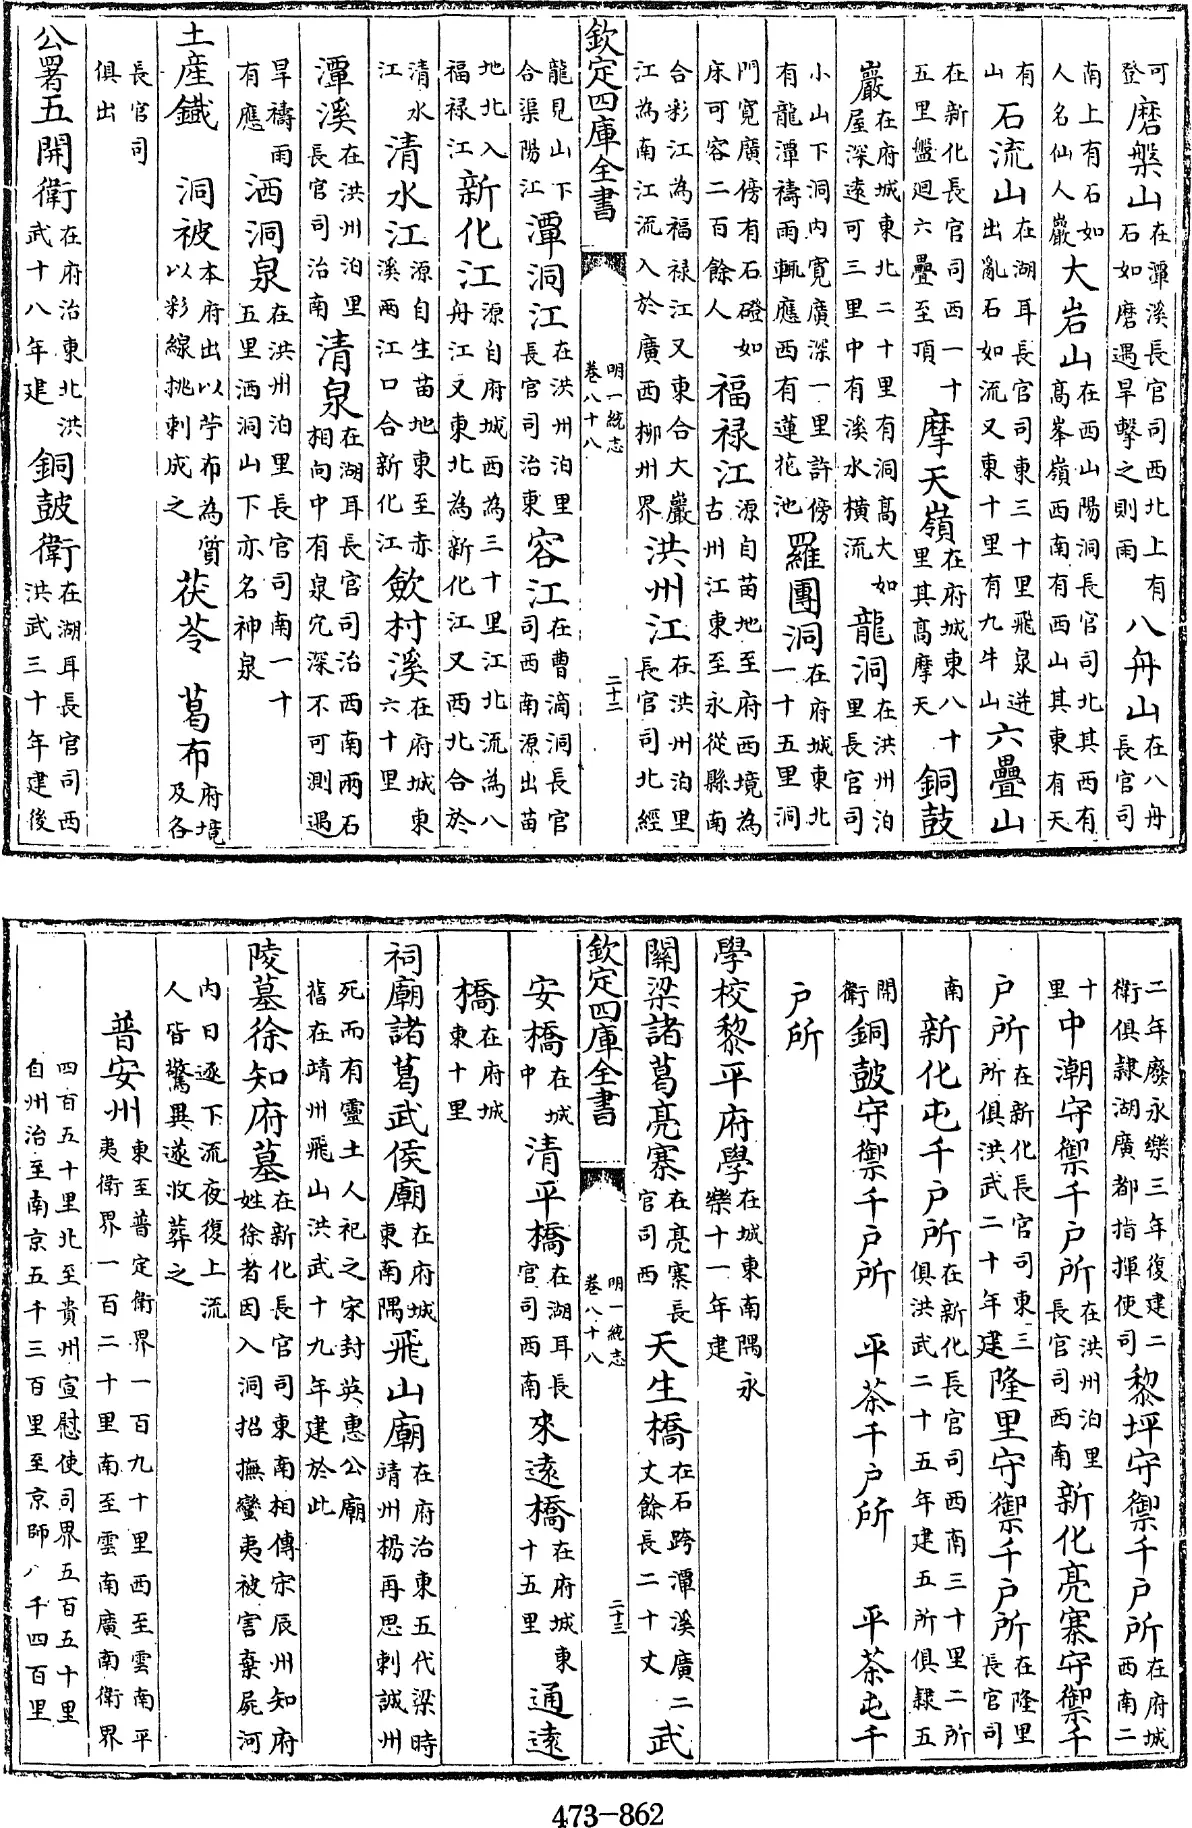 可登磨盤山在潭溪長官司西北上有石如磨遇旱擊之則雨八舟山在八舟長官司
南上有石如人名仙人巖大岩山在西山陽洞長官司北其西有高峯嶺西南有西山其東有天
有山石流山在湖耳長官司東三十里飛泉迸出亂石如流又東十里有九牛山六疊山
在新化長官司西一十五里盤迴六疊至頂摩天嶺在府城東八十里其高摩天銅鼓
巖在府城東北二十里有洞高大如屋深遠可三里中有溪水横流龍洞在洪州泊里長官司
小山下洞内寛廣深一里許傍有龍潭禱雨輒應西有蓮花池羅團洞在府城東北一十五里洞
門寛廣傍有石磴如床可容二百餘人福禄江源自苗地至府西境為古州江東至永從縣南
合彩江為福禄江又東合大巖江為南江流入於廣西栁州界洪州江在洪州泊里長官司北經
欽定四庫全書 明一統志 卷八十八 二十二
龍見山下合渠陽江潭洞江在洪州泊里長官司治東容江在曹滴洞長官司西南源出苗
地北入福禄江新化江源自府城西為三十里江北流為八舟江又東北為新化江又西北合於
清水江清水江源自生苗地東至赤溪兩江口合新化江歛村溪在府城東六十里
潭溪在洪州泊里長官司治南清泉在湖耳長官司治西南兩石相向中有泉穴深不可測遇
旱禱雨有應洒洞泉在洪州泊里長官司南一十五里洒洞山下亦名神泉
土産鐵 洞被本府出以苧布為質以彩線挑刺成之茯苓 葛布府境及各
長官司俱出
公署五開衛在府治東北洪武十八年建銅鼓衛在湖耳長官司西洪武三十年建後
二年廢永樂三年復建二衛俱隷湖廣都指揮使司黎坪守禦千戶所在府城西南二
十里中潮守禦千戶所在洪州泊里長官司西南新化亮寨守禦千
戶所在新化長官司東三所俱洪武二十年建隆里守禦千戶所在隆里長官司
南新化屯千戶所在新化長官司西南三十里二所俱洪武二十五年建五所俱隷五
開衛銅鼓守禦千戶所 平茶千戶所 平茶屯千
戶所
學校黎平府學在城東南隅永樂十一年建
關梁諸葛亮寨在亮寨長官司西天生橋在石跨潭溪廣二丈餘長二十丈武
欽定四庫全書 明一統志 卷八十八 二十三
安橋在城中清平橋在湖耳長官司西南來逺橋在府城東十五里通逺
橋在府城東十里
祠廟諸葛武侯廟在府城東南隅飛山廟在府治東五代梁時靖州楊再思刺誠州
死而有靈土人祀之宋封英惠公廟舊在靖州飛山洪武十九年建於此
陵墓徐知府墓在新化長官司東南相傳宋辰州知府姓徐者因入洞招撫蠻夷被害棄屍河
内日逐下流夜復上流人皆驚異遂收葬之
普安州東至普定衛界一百九十里西至雲南平夷衛界一百二十里南至雲南廣南衛界
四百五十里北至貴州宣慰使司界五百五十里自州治至南京五千三百里至京師八千四百里
473-862